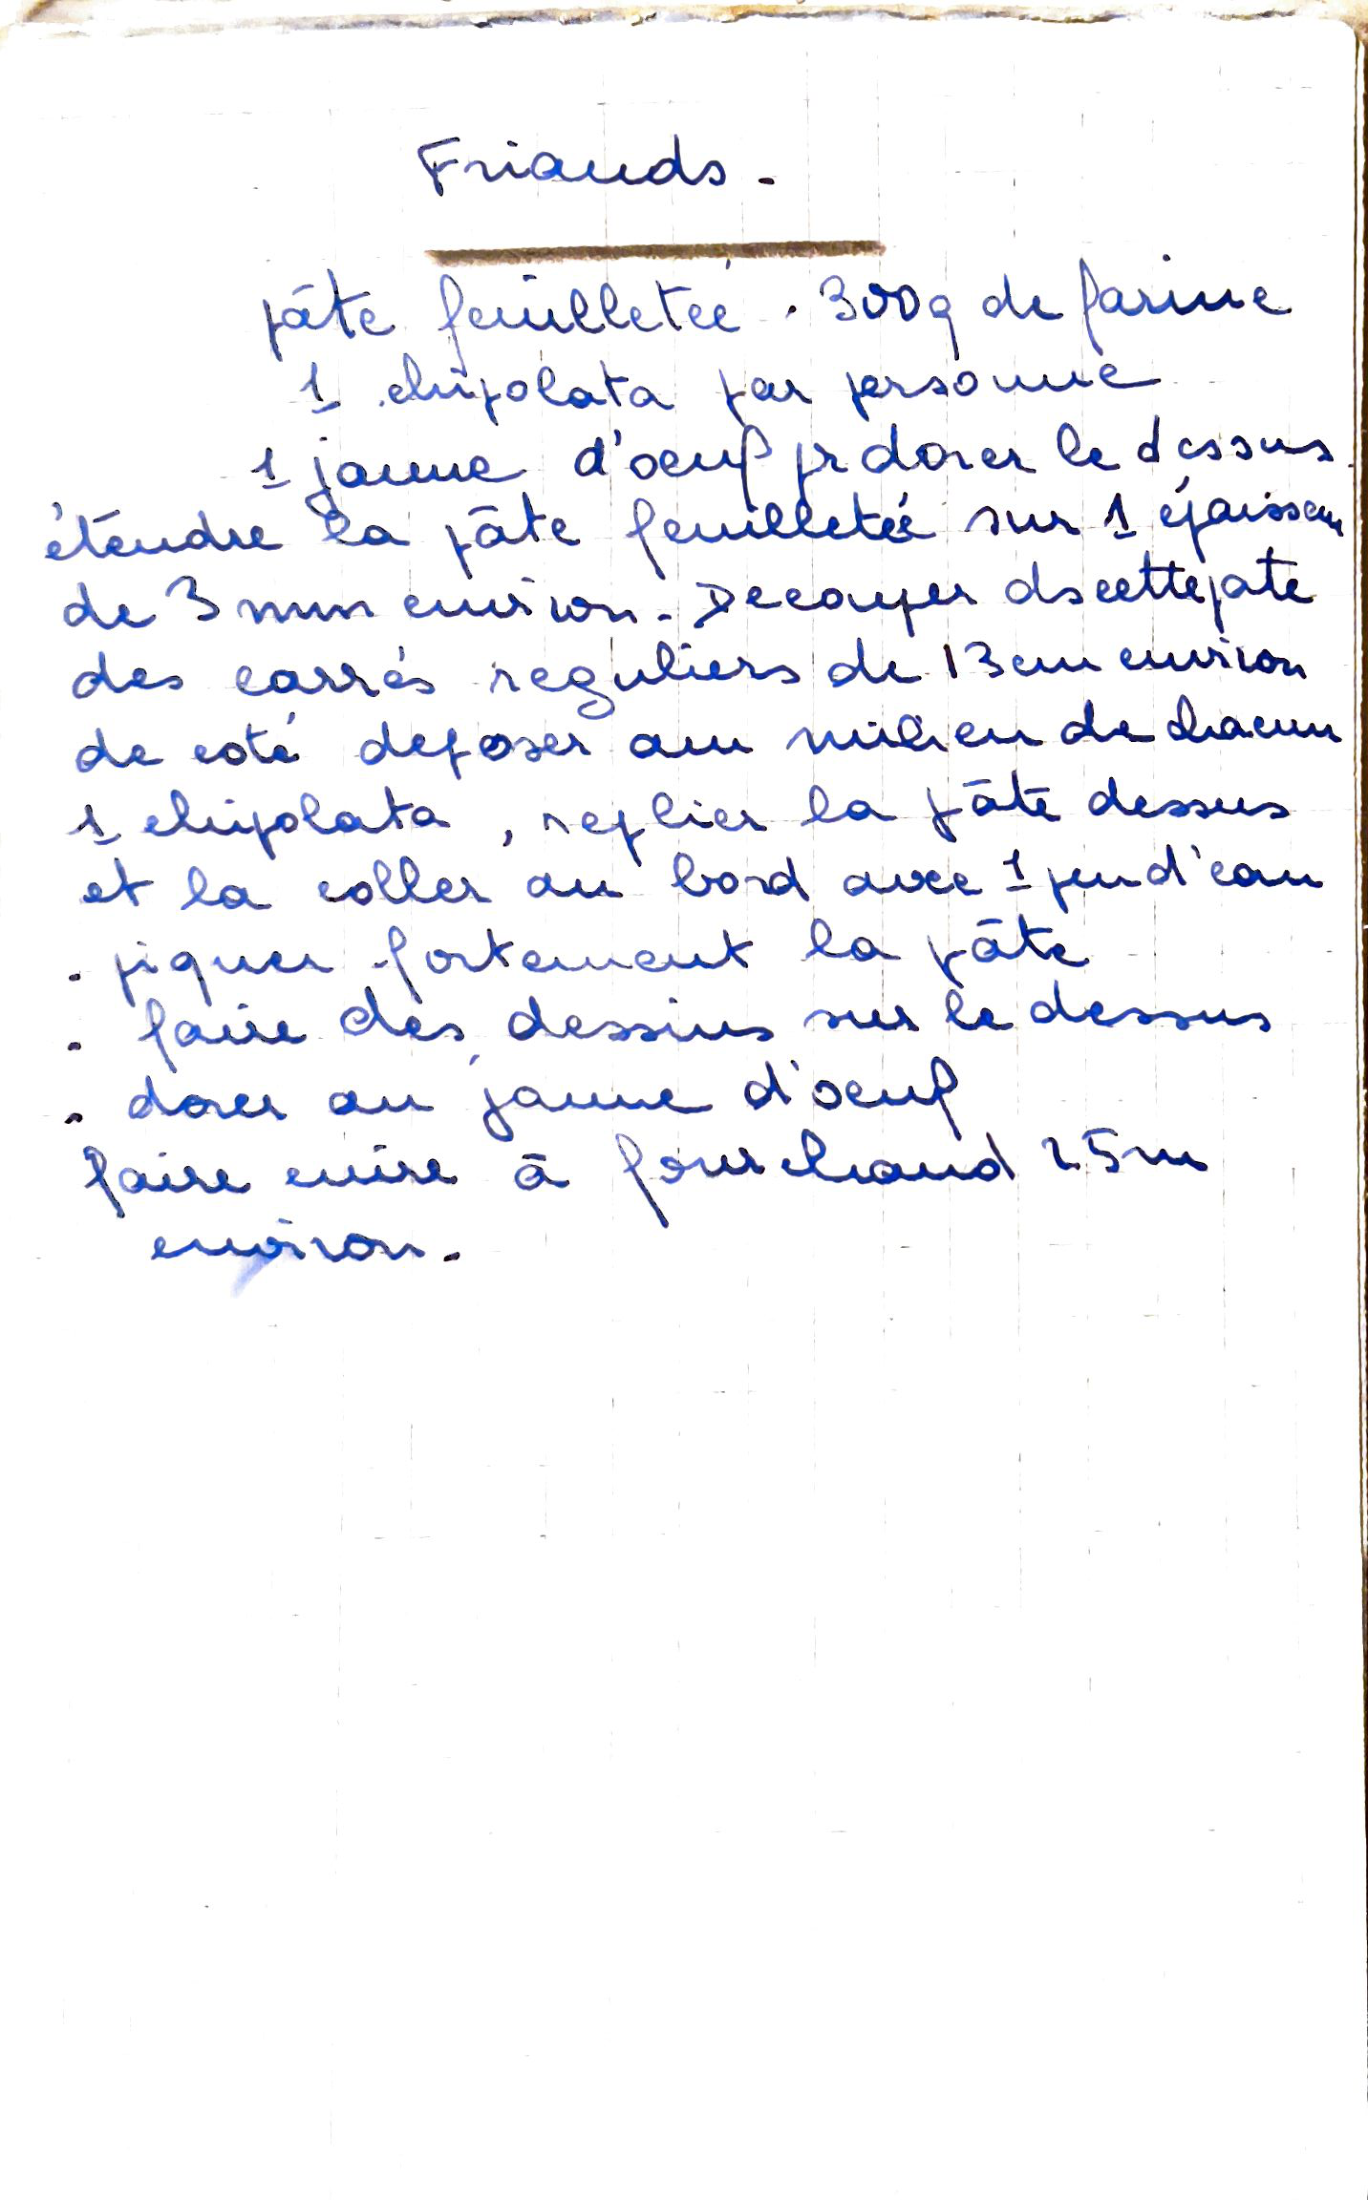 Friands.
pâte feuilletée . 300g de farine
1 chipolata par personne
1 jaune d'oeuf pr dorer le dessus.
étendre la pâte feuilletée sur 1 épaisseur
de 3 mm environ. Decouper ds cette pate
des carrés reguliers de 13 cm environ
de coté deposer au milieu de chacun
1 chipolata, replier la pâte dessus
et la coller au bord avec 1 peu d'eau
. piquer fortement la pâte
. faire des dessins sur le dessus
. dorer au jaune d'oeuf
faire cuire à four chaud 25m
environ.